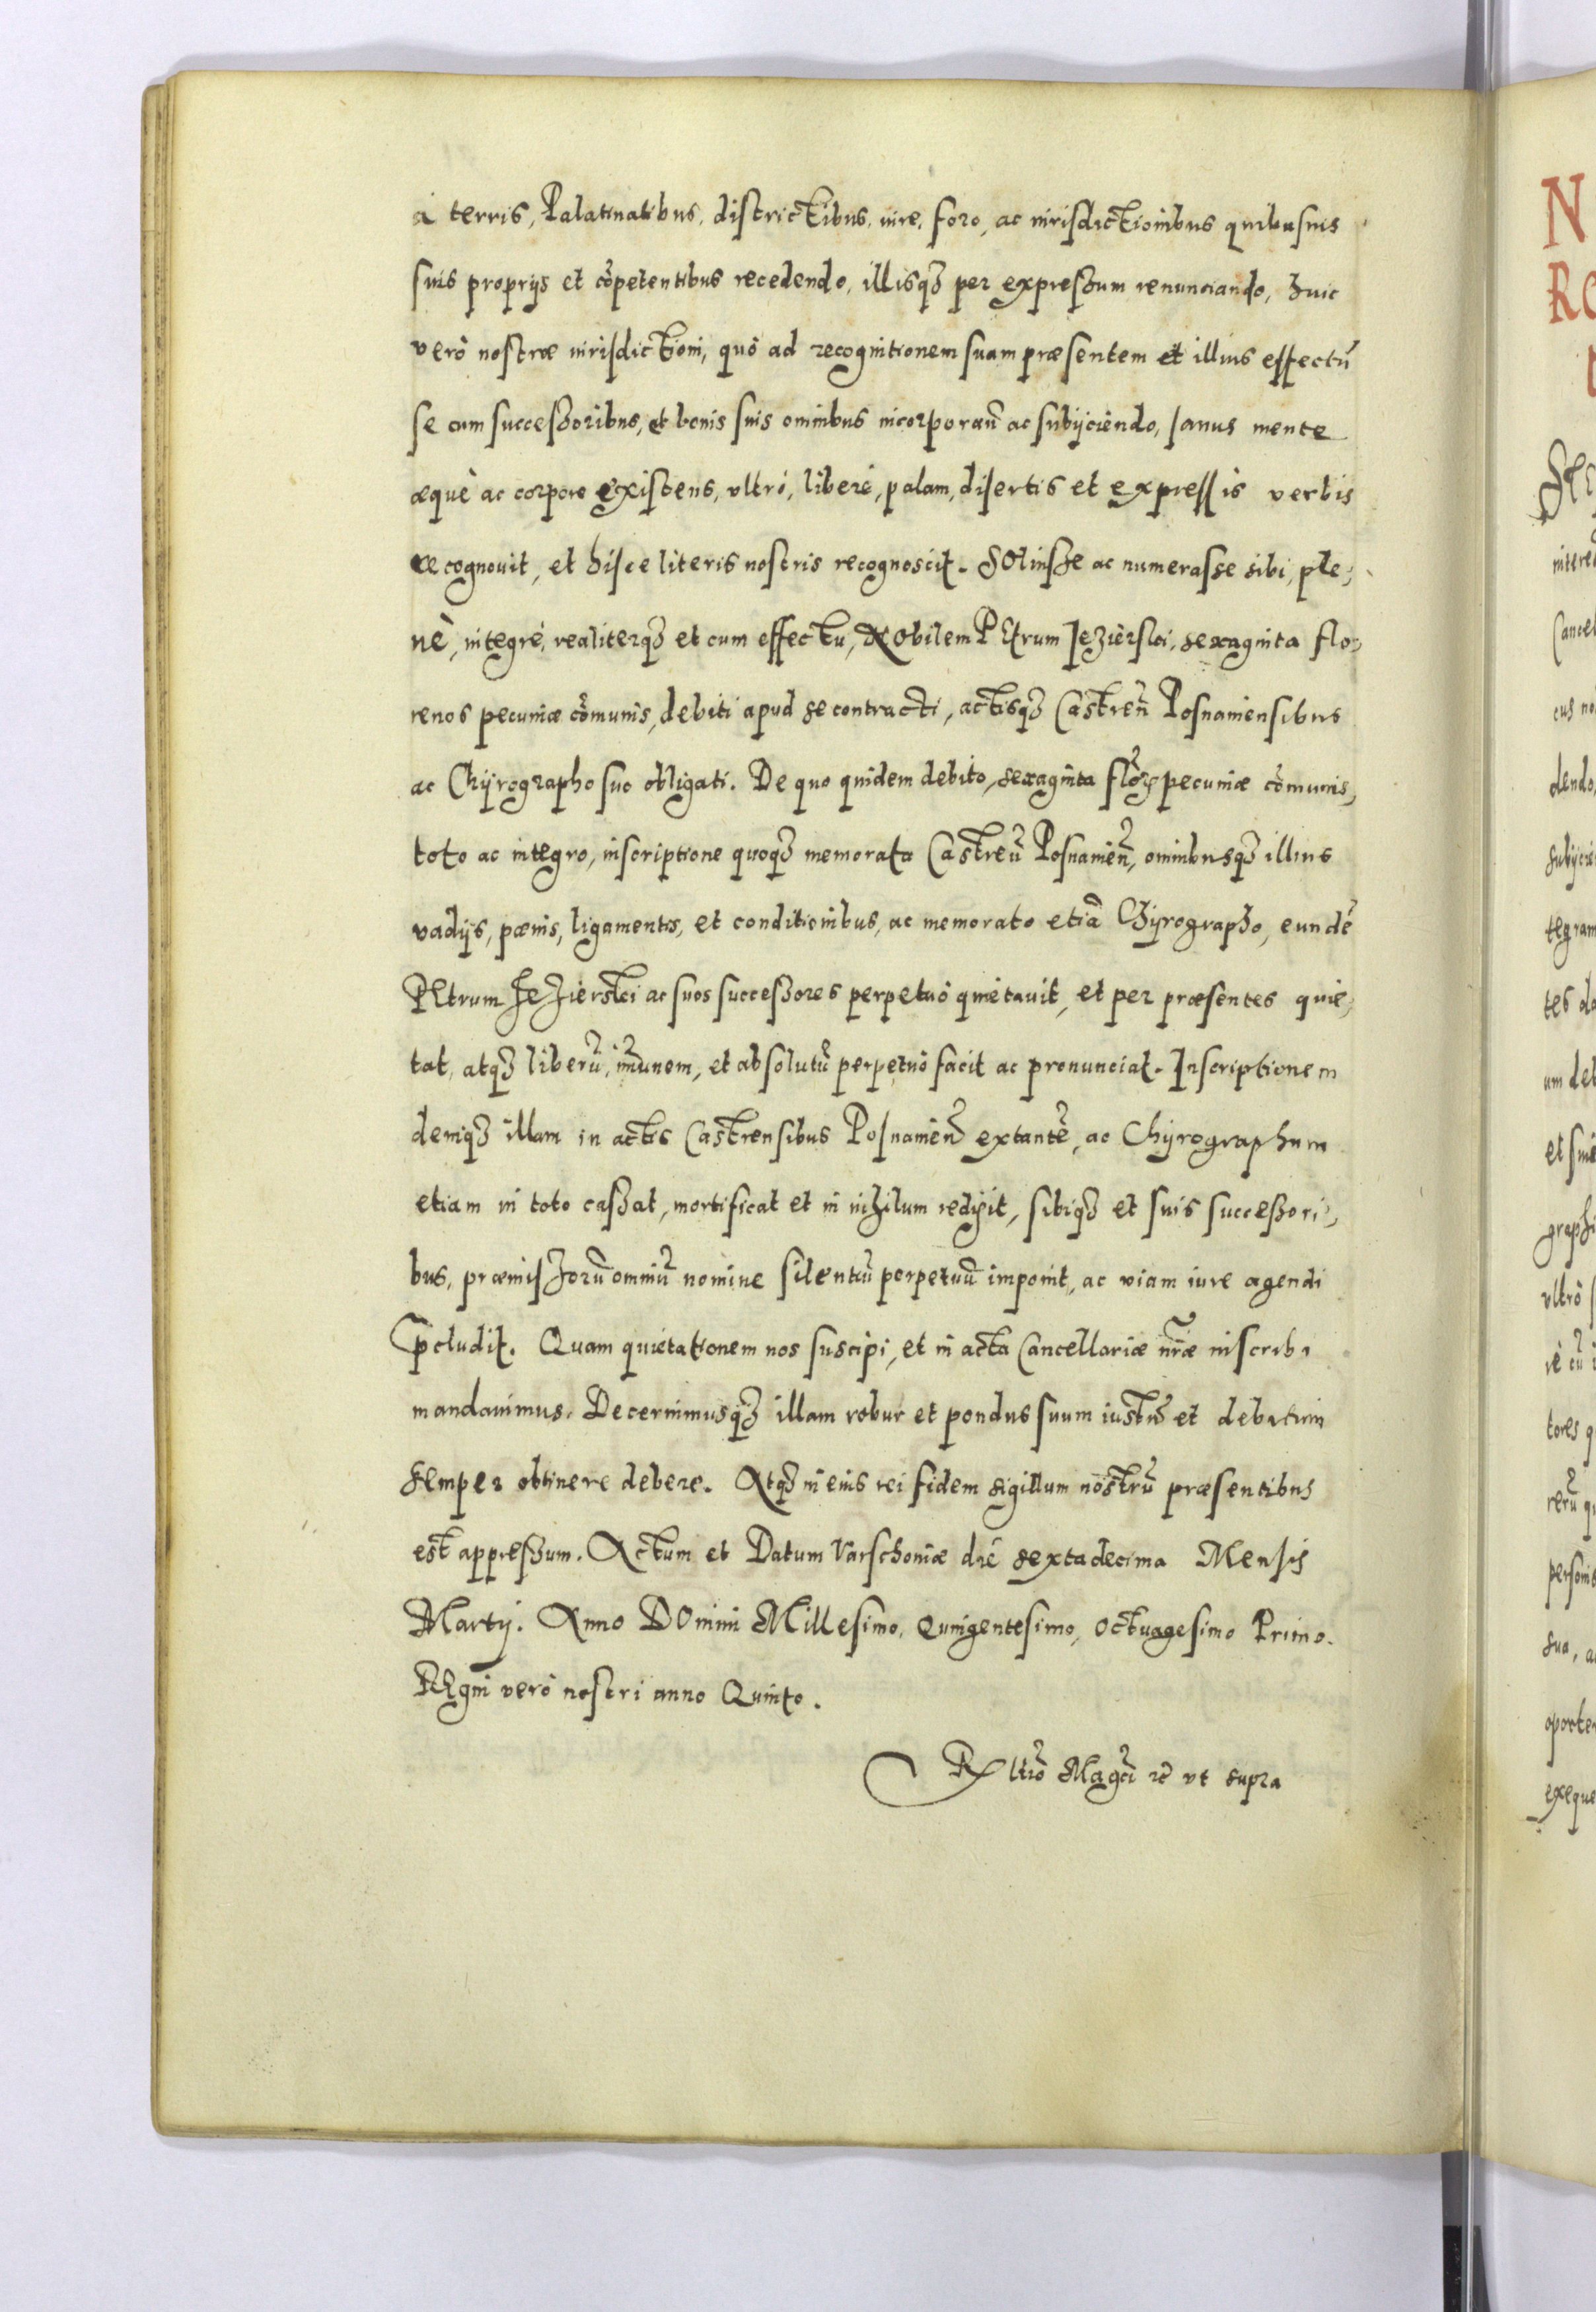 à terris, Palatinatibus, districtibus, iure, foro, ac iurisdictionibus quibusuis
suis proprijs et cõpetentibus recedendo, illisqȝ per expressum renunciando, huic
verò nostræ iurisdictioni, quò ad recognitionem suam præsentem et illius effectũ
se cum successoribus, et bonis suis omnibus incorporan̄ ac subijciendo, sanus mente
æquè ac corpore existens, vltrò, liberè, palam, disertis et expressis verbis
recognouit, et hisce literis nostris recognoscit. SOluisse ac numerasse sibi, ple,
nè, integrè, realiterqȝ et cum effectu, NObilem PEtrum Jezierski, sexaginta flo,
renos pecuniæ cõmunis, debiti apud se contracti, actisqȝ Castren̄ Posnaniensibus
ac Chÿrographo suo obligati. De quo quidem debito, sexaginta flõꝝ pecuniæ cõmunis,
toto ac integro, inscriptione quoqȝ memorata Castren̄ Posnanien̄, omnibusqȝ illius
vadijs, pænis, ligamentis, et conditionibus, ac memorato etiã Chÿrographo, eundẽ
PEtrum Jezierski ac suos successores perpetuò quietauit, et per præsentes quie,
tat, atqȝ liberũ, im̃unem, et absolutũ perpetuò facit ac pronunciat. Inscriptionem
deniqȝ illam in actis Castrensibus Posnanien̄ extantẽ, ac Chÿrographum
etiam in toto cassat, mortificat et in nihilum redigit, sibiqȝ et suis successori,
bus, præmissorũ omniũ nomine silentiũ perpetuũ imponit, ac viam iure agendi
p̄cludit. Quam quietationem nos suscipi, et in acta Cancellariæ nr̃æ inscribi
mandauimus. Decernimusqȝ illam robur et pondus suum iustũ et debitum
semper obtinere debere. Atqȝ in eius rei fidem sigillum nostrũ præsentibus
est appressum. Actum et Datum Varschouiæ diè sextadecima Mensis
Martij. Anno DOmini Millesimo, Quingentesimo, Octuagesimo Primo.
REgni verò nostri anno Quinto.
Rltio Magci rc̃ vt supra